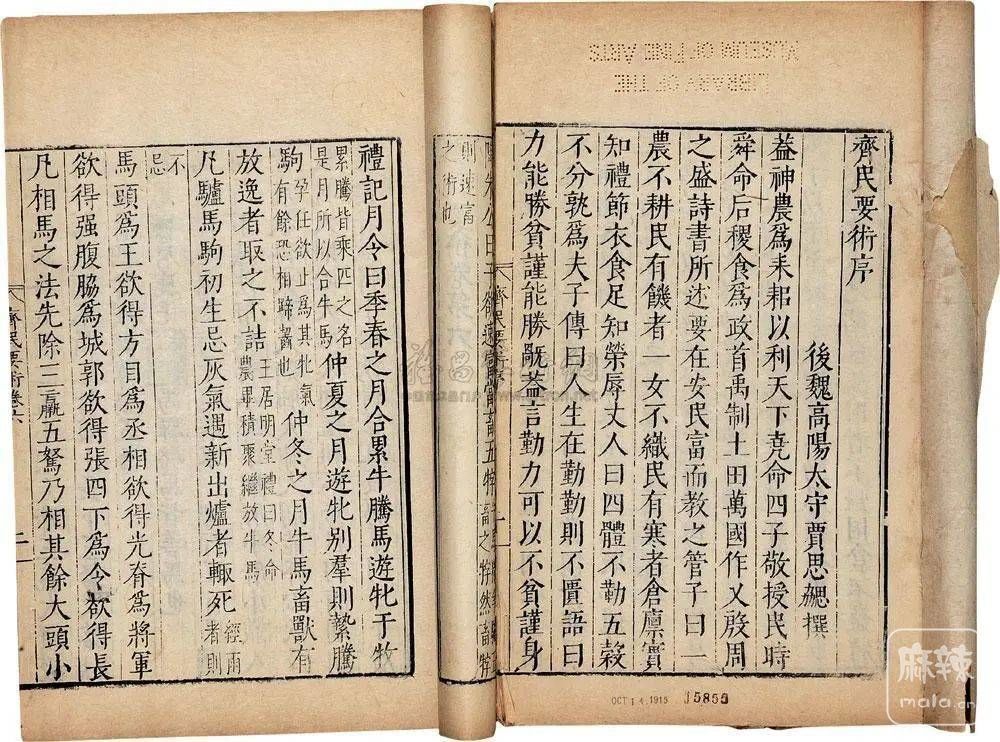 齊民要術序
後魏高陽太守賈思勰撰
蓋神農爲耒耜以利天下堯命四子敬授民時
舜命后稷食爲政首禹制土田萬國作乂殷周
之盛詩書所述要在安民富而教之管子曰一
農不耕民有饑者一女不織民有寒者倉廩實
知禮節衣食足知榮辱丈人曰四體不勤五穀
不分孰爲夫子傳曰人生在勤勤則不匱語曰
力能勝貧謹能勝禍蓋言勤力可以不貧謹身
則速富
之術也
禮記月令曰季春之月合累牛騰馬遊牝于牧
累騰皆乘匹之名
是月所以合牛馬
仲夏之月遊牝別羣則縶騰
駒
孕任欲止其牝氣
有餘恐相蹄齧也
仲冬之月牛馬畜獸有
放逸者取之不詰
王居明堂禮曰冬命
農畢積聚繼放牛馬
凡驢馬駒初生忌灰氣遇新出爐者輙死
經雨
者則
不
忌
馬頭爲王欲得方目爲丞相欲得光脊爲將軍
欲得强腹脇爲城郭欲得張四下爲令欲得長
凡相馬之法先除三羸五駑乃相其餘大頭小
齊民要術卷六
二
LIBRARY OF THE
MUSEUM OF FINE ARTS
OCT 14 1915
15855
麻辣
mala.cn